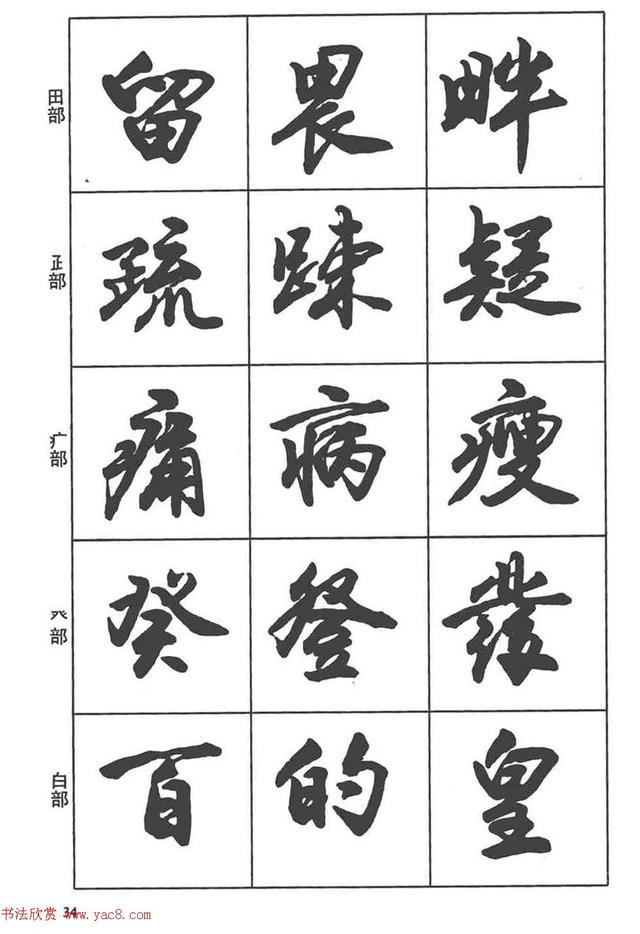 田部
留畏畔
疋部
疏踈疑
疒部
痛病瘦
癶部
癸登發
白部
百的皇
34
书法欣赏 www.yac8.com